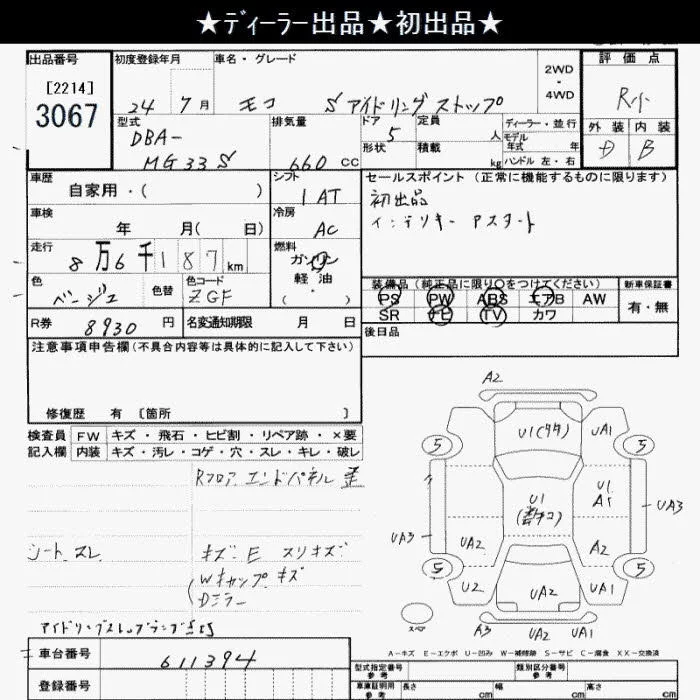 ★ディーラー出品★初出品★
出品番号
[2214]
3067
初度登録年月
24 7月
車名・グレード
モコ S アイドリングストップ
2WD
・
4WD
評価点
R小
外装 内装
D B
型式
DBA-
MG33S
排気量
660 CC
ドア
5
形状
定員
人
積載
kg
ディーラー・並行
モデル年式 年
ハンドル 左・右
車歴
自家用・( )
シフト
IAT
セールスポイント (正常に機能するものに限ります)
初出品
インテリキー Pスタート
車検
年 月( 日)
冷房
AC
走行
8万6千187km
燃料
ガソリン
軽油
( ・ )
色
ベージュ
色替
色コード
ZGF
装備品 (純正品に限り○をつけてください)
PS PW ABS エアB AW
SR TV カワ
新車保証書
有・無
R券 8930 円
名変通知期限 月 日
後日品
注意事項申告欄 (不具合内容等は具体的に記入して下さい)
修復歴 有 [箇所 ]
検査員記入欄
FW キズ・飛石・ヒビ割・リペア跡・×要
内装 キズ・汚レ・コゲ・穴・スレ・キレ・破レ
Rフロア エンドパネル 歪
シート スレ
キズ・E スリキズ
Wキャップ キズ
Dミラー
アイドリングストップランプ点灯
A2
U1(タタ) UA1
5 5
U1
U1
A1
UA3
UA3
UA2
A2
5 5
U2
UA2
UA1
スペア
A3 UA2 UA1
A-キズ E-エクボ U-凹み W-補修跡 S-サビ C-腐食 XX-交換済
車台番号
611394
登録番号
型式指定番号
参考
類別区分番号
参考
車庫証明用
参考
長さ cm
幅 cm
高さ cm